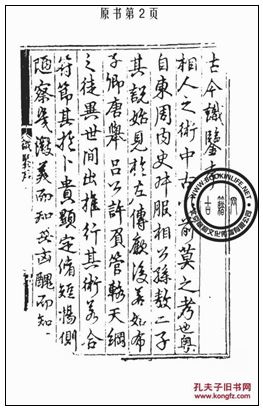 原书第2页
古今識鑒
相人之術中古以前莫之考也粤
自東周内史叔服相公孫敖二子
其説始見於左傳厥後若姑布
子卿唐舉呂公許負管輅天綱
之徒異世間出推行其術若合
符節其於卜貴顯定脩短惕側
陋察幾微美而知其凶醜而知
WWW.BOOKINLIFE.NET
古籍网
孔夫子旧书网
www.kongfz.com